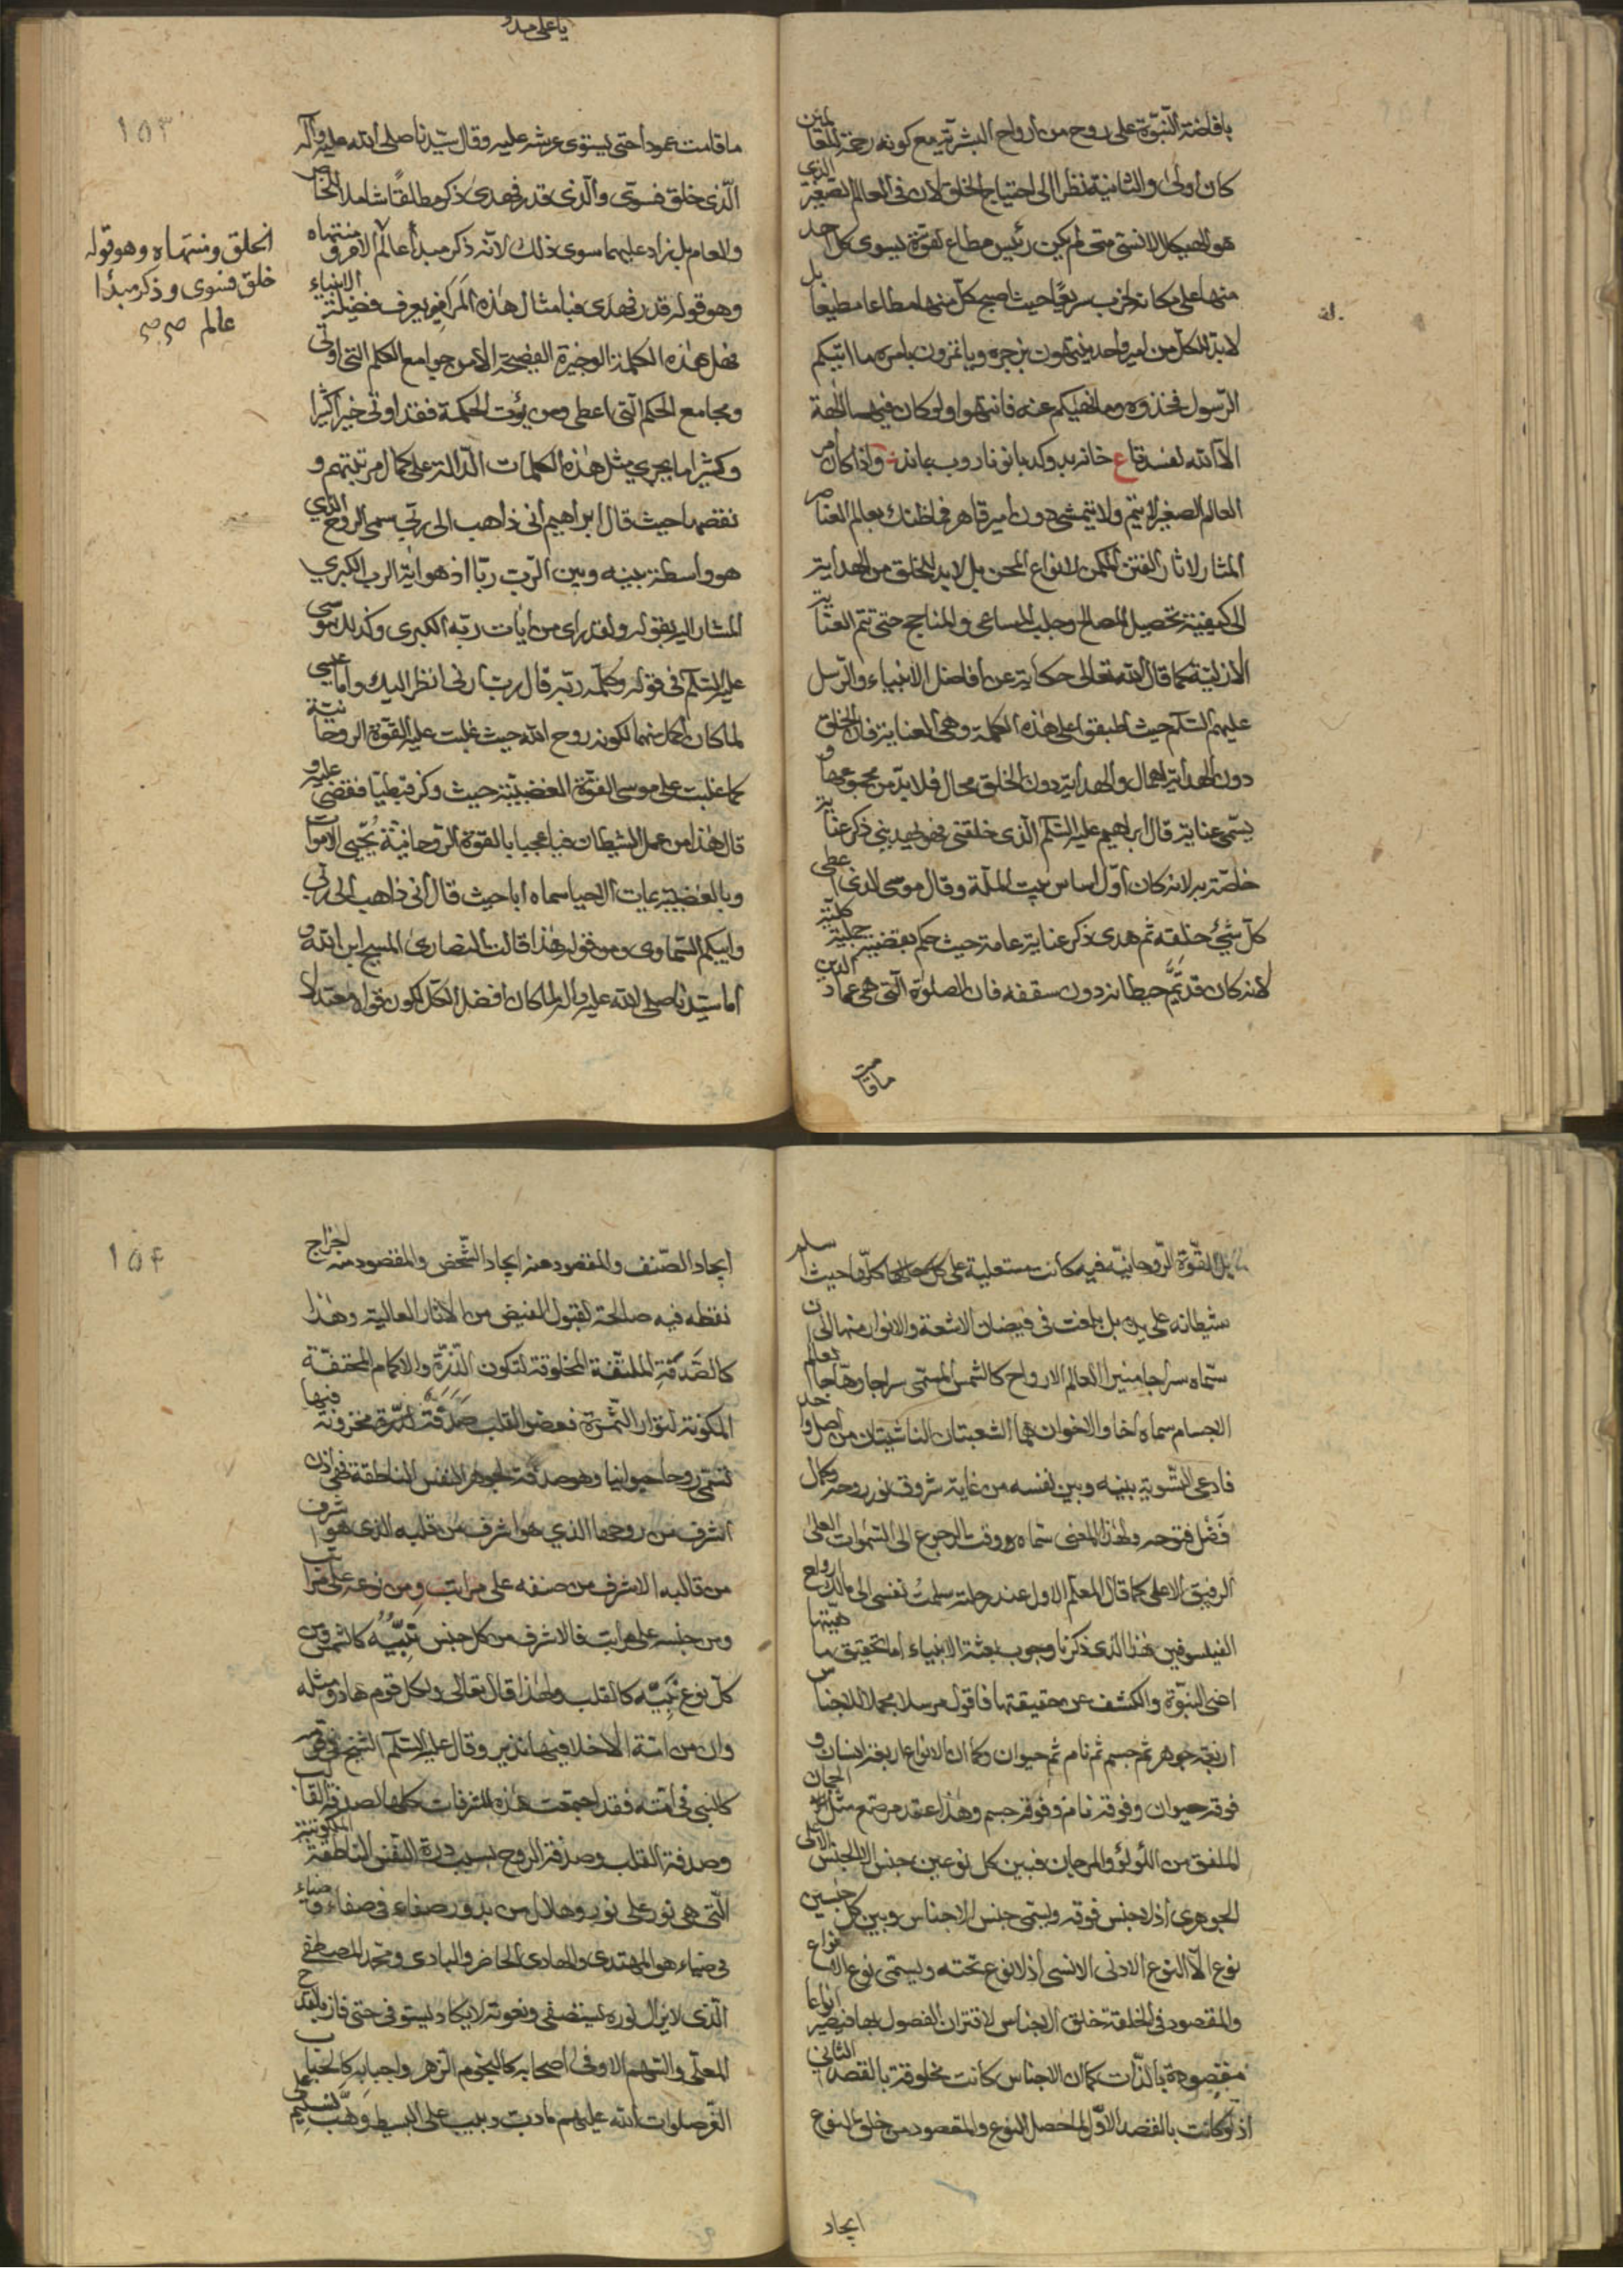 بافاضة النبوّة على روح من أرواح البشرية مع كونه رحمة للعالمين
كان أولى والثانية نظرا الى احتياج الخلق لأن فى العالم الصغير الذى
هو الهيكل الانسى متى لم يكن رئيس مطاع لقوّة يسوى كل واحد
منها على مكانه لخرب سريعًا حيث اصبح كلّ منها مطاعا مطيعا بل
لابدّ للكل من امير واحد ينتهون بزجره ويأتمرون بامره ما اتيكم
الرّسول فخذوه وما نهيكم عنه فانتهوا ولو كان فيهما الهة
الاّ الله لفسدتا ع خانه بدو كدبانو نارو ب بماند واذا كان امر
العالم الصغير لا يتم ولا يتمشى دون أمير قاهر فما ظنك بعالم العناصر
المثار لاثار الفتن المكمن لانواع المحن بل لابد للخلق من الهداية
الى كيفية تحصيل المصالح وجلب المساعى والمناجح حتى تتم العناية
الازلية كما قال الله تعالى حكاية عن أفاضل الانبياء والرّسل
عليهم السّلم حيث اطبقوا على هذه الكلمة وهى العناية فان الخلق
دون الهداية اهمال والهداية دون الخلق محال فلابدّ من مجموعهما و
يسمّى عناية قال ابراهيم عليه السّلم الّذى خلقنى فهو يهدينى ذكر عناية
خاصّة به لانه كان أوّل اساس بيت الملّة وقال موسى الذى اعطى
كلّ شئ خلقه ثم هدى ذكر عناية عامة حيث حكم بقضية كلية جلية
لانه كان قد تمّم حيطانه دون سقفه فان الصلوة الّتى هى عماد الدين
ماقامت
ياعلى مدد
١٥٣
ماقامت عمودا حتى يستوى عرشه عليه وقال سيّدنا صلى الله عليه وآله
الّذى خلق فسوّى والّذى قدر فهدى ذكر مطلقًا شاملا للخاص
والعام بل زاد عليهما سوى ذلك لانّه ذكر مبدأ عالم الامر ومنتهاه
وهو قوله قدر فهدى فبامثال هذه المراميز يعرف فضيلة الانبياء
فهل هذه الكلمة الوجيزة الفصيحة الا من جوامع الكلم التى اوتى
ومجامع الحكم الّتى اعطى ومن يؤت الحكمة فقد اوتى خيرا كثيرا
وكثيرا ما يجرى مثل هذه الكلمات الدّالة على كمال مرتبتهم و
نقصها حيث قال ابراهيم انى ذاهب الى ربّى سمى الروح الذى
هو واسطة بينه وبين الرّب ربّا اذ هو اية الرب الكبرى
المشار اليه بقوله ولقد راى من ايات ربّه الكبرى وكذلك موسى
عليه السّلم فى قوله وكلّمه ربّه قال رب ارنى انظر اليك واما عيسى
لما كان أكمل منهما لكونه روح الله حيث غلبت عليه القوّة الروحانية
كما غلبت على موسى القوّة الغضبيّة حيث وكز قبطيّا فقضى عليه و
قال هذا من عمل الشيطان فيا عجبا بالقوة الرّوحانيّة يُحيى الاموات
وبالغضبية يمات الاحيا سماه ابا حيث قال انى ذاهب الى ربّى
وابيكم السّماوى ومن قوله هذا قالت النصارى المسيح ابن الله و
أما سيّدنا صلى الله عليه وآله لما كان افضل الكلّ لكون قواه معتدلة
الخلق ومنتهاه وهو قوله
خلق فسوى وذكر مبدأ
عالم صح صح
بل القوّة الرّوحانيّة فيه كانت مستعلية على كل حالها كلّها حيث اسلم
شيطانه على يده بل بلغت فى فيضان الاشعة والانوار منها الى ان
سمّاه سراجا منيرا لعالم الارواح كالشمس المسمّى سراجا وهّاجا لعالم
الاجسام سماه اخا والاخوان هما الشعبتان الناشيتان من اصل واحد
فادعى التّسوية بينه وبين نفسه من غاية شروق نور روحه وكمال
فَضْل فتوحه ولهذا المعنى سمّاه ووقت الرجوع الى السّموات العلى
الرفيق الاعلى كما قال المعلّم الاول عند رحلته سلمتُ نفسى الى مالك ارواح
الفيلسوفين هذا الذى ذكرنا وجوب بعثة الانبياء اما تحقيق ماهيّتها
اعنى النبوّة والكشف عن حقيقتها فاقول مرسلا مجملا الاجناس
اربعة جوهر ثم جسم ثم نام ثم حيوان وكما ان الانواع اربعة انسان و
فوقه حيوان وفوقه نام وفوقه جسم وهذا عقد مرصّع مثل الجمان
الملفق من اللّؤلؤ والمرجان فبين كل نوعين جنس الا الجنس الاعلى
الجوهرى اذ لا جنس فوقه ويسمّى جنس الاجناس وبين كل جنسين
نوع الّا النوع الادنى الانسى اذ لا نوع تحته ويسمّى نوع الانواع
والمقصود فى الخلقة خلق الاجناس لاقتران الفصول بها فيصير انواعا
مقصودة بالذّات كما ان الاجناس كانت مخلوقة بالقصد الثانى
اذ لو كانت بالقصد الاوّل لما حصل النوع والمقصود من خلق النوع
ايجاد
١٥٤
ايجاد الصّنف والمقصود منه ايجاد الشّخص والمقصود منه اخراج
نقطه فيه صالحة لقبول الفيض من الاثار العالية وهذا
كالصَّدَفةِ الملتفّة المخلوقة لتكون الدّرّة والاكمام المحتفّة
المكونة لنوار الثّمرة فعضو القلب صَدَفة لدرّة مخزونة فيها
تسمّى روحا حيوانيا وهو صدفة لجوهر النفس الناطقة فهى اذن
اشرف من روحها الذى هو اشرف من قلبه الذى هو اشرف
من قالبه الاشرف من صنفه على مراتب ومن نوعه على مراتب
ومن جنسه على مراتب فالاشرف من كل جنس نبيُّه كالشمس ومن
كل نوع نبيّه كالقلب ولهذا قال تعالى ولكل قوم هاد ومثله
وان من امّة الا خلا فيها نذير وقال عليه السّلم الشيخ فى قومه
كالنبى فى امّته فقد اجتمعت هذه الشرفات كلها لصدفة القالب
وصدفة القلب وصدفة الروح بسبب درة النّفس الناطقة المكنونة
الّتى هى نور على نور وهلال من بدور صفاء فى صفاء وضياء
فى ضياء هو المهتدى والهادى الحاضر والبادى ومحمّد المصطفى
الّذى لايزال نوره يستضفى ونعوته لايكاد يستوفى حتى فاز بالقدح
المعلّى والسّهم الاوفى اصحابه كالنجوم الزّهر واحبابه كالحباب
الغرّ صلوات الله عليهم مادبّ دبيب على البسيط وهبّ نسيم على